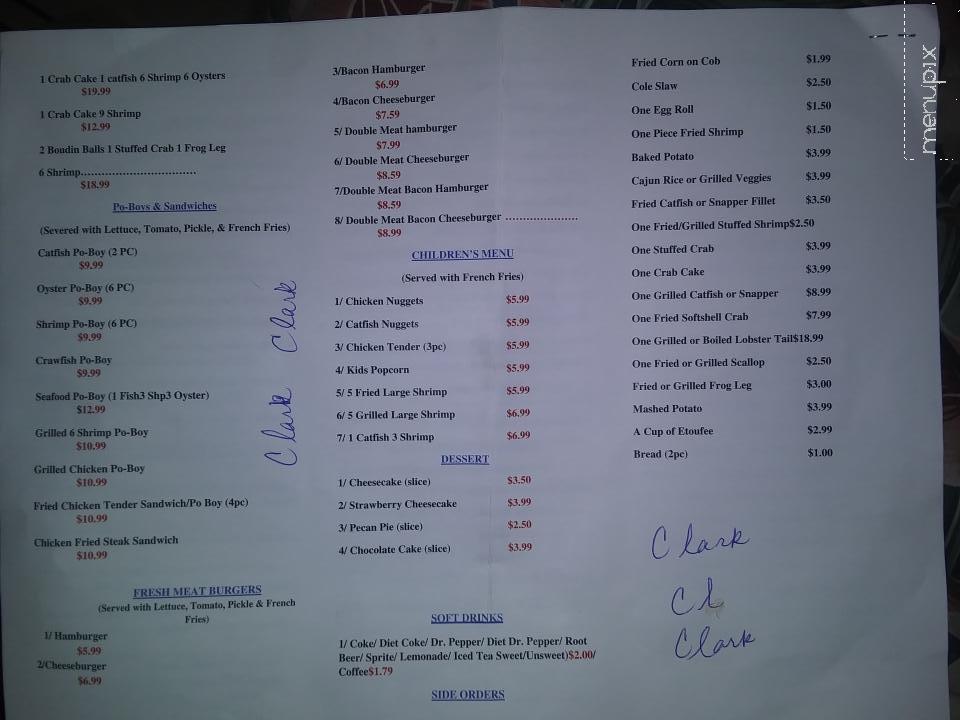 1 Crab Cake 1 catfish 6 Shrimp 6 Oysters
$19.99
1 Crab Cake 9 Shrimp
$12.99
2 Boudin Balls 1 Stuffed Crab 1 Frog Leg
6 Shrimp................................
$18.99
Po-Boys & Sandwiches
(Severed with Lettuce, Tomato, Pickle, & French Fries)
Catfish Po-Boy (2 PC)
$9.99
Oyster Po-Boy (6 PC)
$9.99
Shrimp Po-Boy (6 PC)
$9.99
Crawfish Po-Boy
$9.99
Seafood Po-Boy (1 Fish3 Shp3 Oyster)
$12.99
Grilled 6 Shrimp Po-Boy
$10.99
Grilled Chicken Po-Boy
$10.99
Fried Chicken Tender Sandwich/Po Boy (4pc)
$10.99
Chicken Fried Steak Sandwich
$10.99
FRESH MEAT BURGERS
(Served with Lettuce, Tomato, Pickle & French
Fries)
1/ Hamburger
$5.99
2/Cheeseburger
$6.99
Clark
Clark
3/Bacon Hamburger
$6.99
4/Bacon Cheeseburger
$7.59
5/ Double Meat hamburger
$7.99
6/ Double Meat Cheeseburger
$8.59
7/Double Meat Bacon Hamburger
$8.59
8/ Double Meat Bacon Cheeseburger ....................
$8.99
CHILDREN'S MENU
(Served with French Fries)
1/ Chicken Nuggets $5.99
2/ Catfish Nuggets $5.99
3/ Chicken Tender (3pc) $5.99
4/ Kids Popcorn $5.99
5/ 5 Fried Large Shrimp $5.99
6/ 5 Grilled Large Shrimp $6.99
7/ 1 Catfish 3 Shrimp $6.99
DESSERT
1/ Cheesecake (slice) $3.50
2/ Strawberry Cheesecake $3.99
3/ Pecan Pie (slice) $2.50
4/ Chocolate Cake (slice) $3.99
SOFT DRINKS
1/ Coke/ Diet Coke/ Dr. Pepper/ Diet Dr. Pepper/ Root
Beer/ Sprite/ Lemonade/ Iced Tea Sweet/Unsweet)$2.00/
Coffee$1.79
SIDE ORDERS
Fried Corn on Cob $1.99
Cole Slaw $2.50
One Egg Roll $1.50
One Piece Fried Shrimp $1.50
Baked Potato $3.99
Cajun Rice or Grilled Veggies $3.99
Fried Catfish or Snapper Fillet $3.50
One Fried/Grilled Stuffed Shrimp$2.50
One Stuffed Crab $3.99
One Crab Cake $3.99
One Grilled Catfish or Snapper $8.99
One Fried Softshell Crab $7.99
One Grilled or Boiled Lobster Tail$18.99
One Fried or Grilled Scallop $2.50
Fried or Grilled Frog Leg $3.00
Mashed Potato $3.99
A Cup of Etoufee $2.99
Bread (2pc) $1.00
Clark
Cl
Clark
menupix